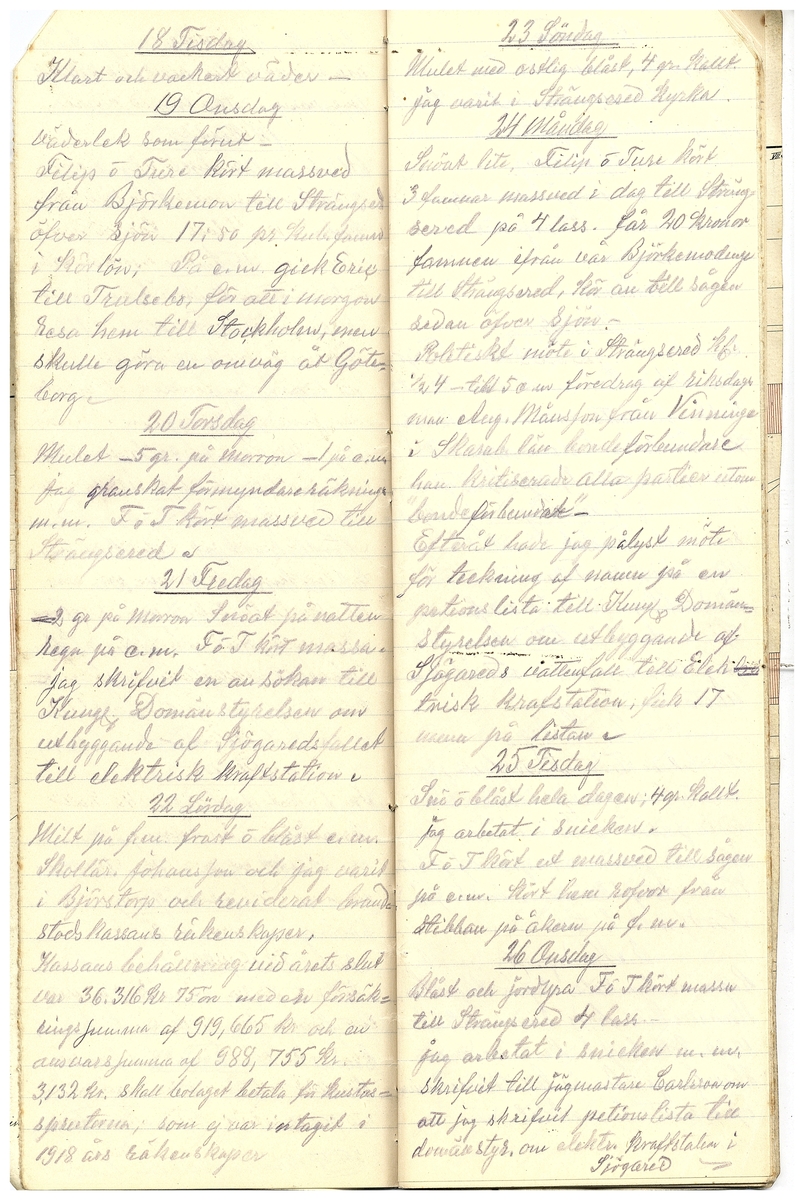 18 Tisdag
Klart och vackert väder —
19 Onsdag
väderlek som förut —
Filip ö Ture kört massved
från Björkemon till Strängsered
öfver Sjön 17:50 pr. kub. famn
i körlön; På e.m. gick Eric
till Trulsebo, för att i morgon
resa hem till Stockholm, men
skulle göra en omväg åt Göte-
borg
20 Torsdag
Mulet —5 gr. på morron —1 på e.m.
Jag granskat förmyndareräkning
m.m. F ö T kört massved till
Strängsered
21 Fredag
—2 gr på morron Snöat på natten
regn på e.m. F ö T kört massa
jag skrifvit en ansökan till
Kungl. Domänstyrelsen om
utbyggande af Sjögaredsfallet
till elektrisk kraftstation
22 Lördag
Milt på f.m. frost ö blåst e.m.
Skollär. Johansson och jag varit
i Björstorp och reviderat brand-
stodskassans räkenskaper.
Kassans behållning vid årets slut
var 36.316 Kr 75 ön med en försäk=
ringssumma af 919,665 kr och en
ansvarssumma af 988,755 Kr.
3,132 Kr. skall bolaget betala för
sprutorna; som ej var intagit i
1918 års räkenskaper
23 Söndag
Mulet med ostlig blåst, 4 gr. kallt.
jag varit i Strängsered kyrka.
24 Måndag
Snöat lite. Filip ö Ture kört
3 famnar massved i dag till Sträng-
sered på 4 lass. får 20 kronor
famnen ifrån vår
till Strängsered, kör an till sågen
sedan öfver sjön.—
Politiskt möte i Strängsered Kl.
½ 4 — till 5 e m föredrag af riksdags
man Aug. Månsson från Vinninga
i Skarab. län bondeförbundare
han kritiserade alla partier utom
"bondeförbundet"—
Efteråt hade jag pålyst möte
för teckning af namn på en
petionslista till Kungl. Domän=
styrelsen om utbyggande af
Sjögareds vattenfall till Elek
trisk kraftstation, fick 17
namn på listan
25 Tisdag
Snö ö blåst hela dagen; 4 gr. kallt.
jag arbetat i snicken.
F ö T kört ut massved till sågen
på e.m. kört hem rofvor från
stibban på åkern på f.m.
26 Onsdag
Blåst och jordypa F ö T kört massa
till Strängsered 4 lass —
jag arbetat i snicken m.m.
skrifvit till jägmastare Carlsson om
att jag skrifvit petionslista till
domänstyr. om elektr. kraftstation i
Sjögared